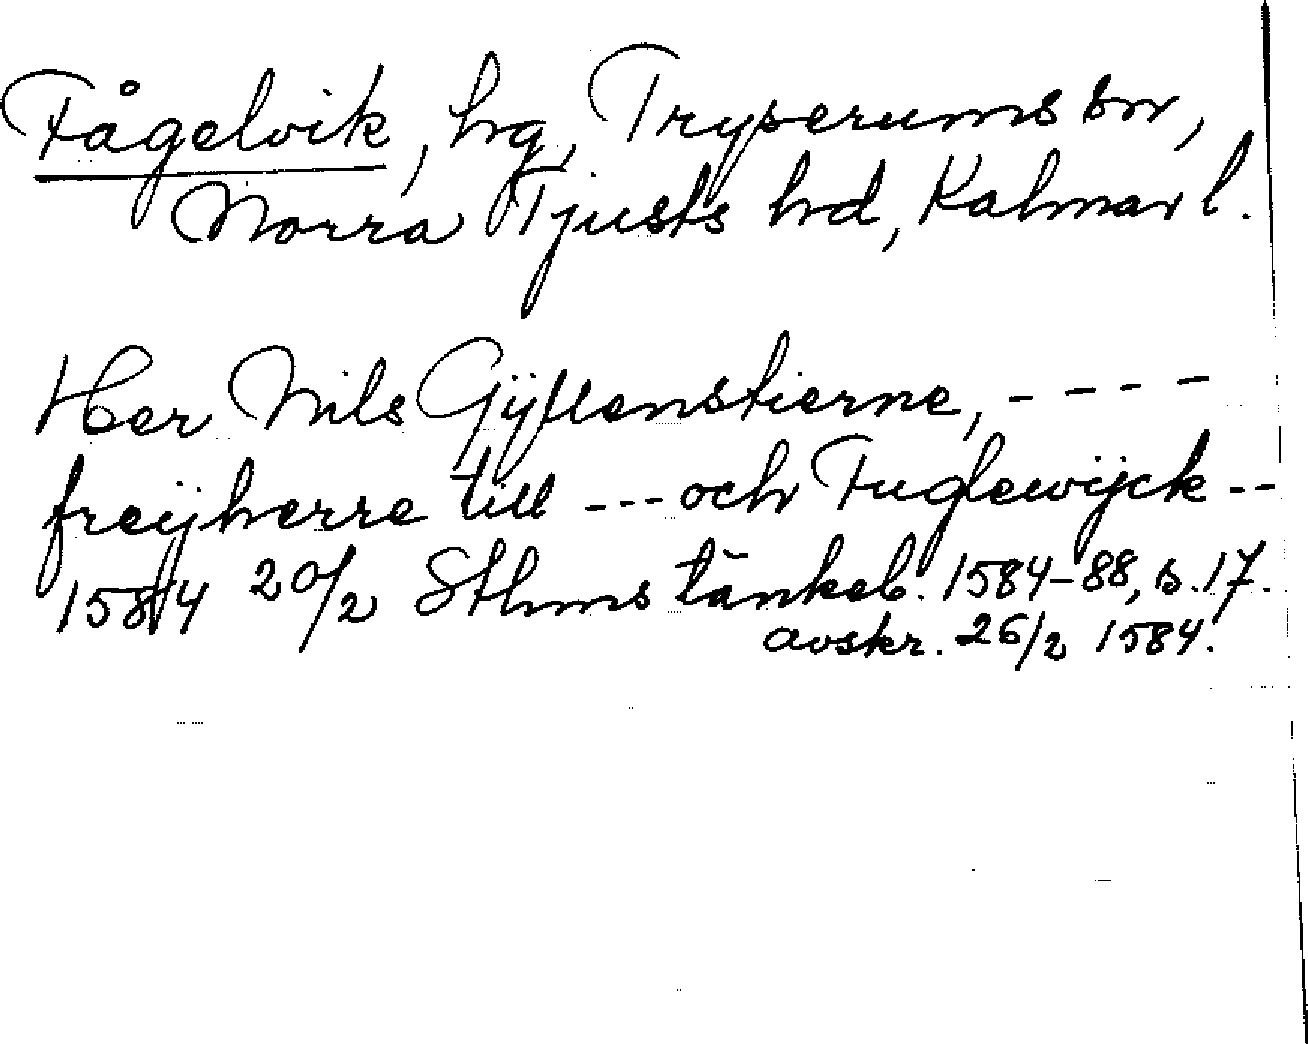 Fågelvik, hg, Tryserums sn,
Norra Tjusts hd, Kalmar l.
Her Nils Gÿllenstierne, - - - -
freÿherre till --- och Fuglewÿck --
1584 20/2 Sthms tänkeb. 1584-88, s. 17.
avskr. 26/2 1584.